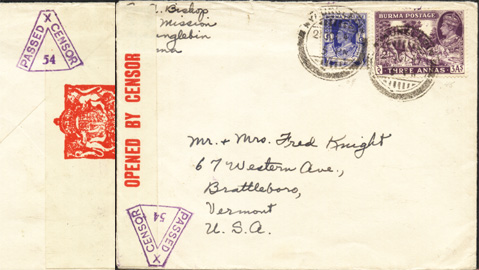 PASSED X CENSOR
54
OPENED BY CENSOR
Bishop
Mission
BURMA POSTAGE
THREE ANNAS
3AS
Mr. + Mrs. Fred Knight
67 Western Ave.,
Brattleboro,
Vermont
U. S. A.
PASSED X CENSOR
54